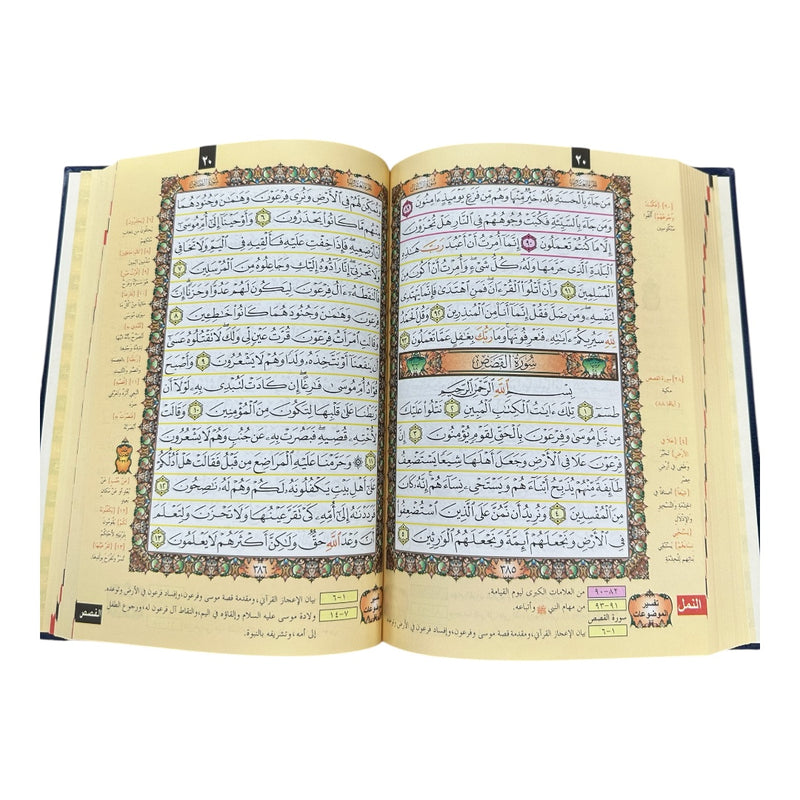 ٢٠
مَن جَآءَ بِٱلْحَسَنَةِ فَلَهُۥ خَيْرٌ مِّنْهَا وَهُم مِّن فَزَعٍ يَوْمَئِذٍ ءَامِنُونَ ٨٩
وَمَن جَآءَ بِٱلسَّيِّئَةِ فَكُبَّتْ وُجُوهُهُمْ فِى ٱلنَّارِ هَلْ تُجْزَوْنَ
إِلَّا مَا كُنتُمْ تَعْمَلُونَ ٩٠ إِنَّمَآ أُمِرْتُ أَنْ أَعْبُدَ رَبَّ هَٰذِهِ
ٱلْبَلْدَةِ ٱلَّذِى حَرَّمَهَا وَلَهُۥ كُلُّ شَىْءٍ وَأُمِرْتُ أَنْ أَكُونَ مِنَ
ٱلْمُسْلِمِينَ ٩١ وَأَنْ أَتْلُوَا۟ ٱلْقُرْءَانَ فَمَنِ ٱهْتَدَىٰ فَإِنَّمَا يَهْتَدِى
لِنَفْسِهِۦ وَمَن ضَلَّ فَقُلْ إِنَّمَآ أَنَا۠ مِنَ ٱلْمُنذِرِينَ ٩٢ وَقُلِ ٱلْحَمْدُ
لِلَّهِ سَيُرِيكُمْ ءَايَٰتِهِۦ فَتَعْرِفُونَهَا وَمَا رَبُّكَ بِغَٰفِلٍ عَمَّا تَعْمَلُونَ ٩٣
سُورَةُ القَصَصِ
بِسْمِ ٱللَّهِ ٱلرَّحْمَٰنِ ٱلرَّحِيمِ
طسٓمٓ ١ تِلْكَ ءَايَٰتُ ٱلْكِتَٰبِ ٱلْمُبِينِ ٢ نَتْلُوا۟ عَلَيْكَ
مِن نَّبَإِ مُوسَىٰ وَفِرْعَوْنَ بِٱلْحَقِّ لِقَوْمٍ يُؤْمِنُونَ ٣ إِنَّ
فِرْعَوْنَ عَلَا فِى ٱلْأَرْضِ وَجَعَلَ أَهْلَهَا شِيَعًا يَسْتَضْعِفُ
طَآئِفَةً مِّنْهُمْ يُذَبِّحُ أَبْنَآءَهُمْ وَيَسْتَحْىِۦ نِسَآءَهُمْ إِنَّهُۥ كَانَ
مِنَ ٱلْمُفْسِدِينَ ٤ وَنُرِيدُ أَن نَّمُنَّ عَلَى ٱلَّذِينَ ٱسْتُضْعِفُوا۟
فِى ٱلْأَرْضِ وَنَجْعَلَهُمْ أَئِمَّةً وَنَجْعَلَهُمُ ٱلْوَٰرِثِينَ ٥
٣٨٥
النمل
تفسير الموضوعات
٨٢-٩٠ من العلامات الكبرى ليوم القيامة.
٩١-٩٣ من مهام النبي ﷺ وأتباعه.
سورة القصص
١-٦ بيان الإعجاز القرآني، ومقدمة قصة موسى وفرعون، وإفساد فرعون في الأرض
٢٠
وَنُمَكِّنَ لَهُمْ فِى ٱلْأَرْضِ وَنُرِىَ فِرْعَوْنَ وَهَٰمَٰنَ وَجُنُودَهُمَا
مِنْهُم مَّا كَانُوا۟ يَحْذَرُونَ ٦ وَأَوْحَيْنَآ إِلَىٰٓ أُمِّ مُوسَىٰٓ
أَنْ أَرْضِعِيهِ فَإِذَا خِفْتِ عَلَيْهِ فَأَلْقِيهِ فِى ٱلْيَمِّ وَلَا تَخَافِى
وَلَا تَحْزَنِىٓ إِنَّا رَآدُّوهُ إِلَيْكِ وَجَاعِلُوهُ مِنَ ٱلْمُرْسَلِينَ ٧
فَٱلْتَقَطَهُۥٓ ءَالُ فِرْعَوْنَ لِيَكُونَ لَهُمْ عَدُوًّا وَحَزَنًا إِنَّ
فِرْعَوْنَ وَهَٰمَٰنَ وَجُنُودَهُمَا كَانُوا۟ خَٰطِـِٔينَ ٨
وَقَالَتِ ٱمْرَأَتُ فِرْعَوْنَ قُرَّتُ عَيْنٍ لِّى وَلَكَ لَا تَقْتُلُوهُ عَسَىٰٓ
أَن يَنفَعَنَآ أَوْ نَتَّخِذَهُۥ وَلَدًا وَهُمْ لَا يَشْعُرُونَ ٩ وَأَصْبَحَ
فُؤَادُ أُمِّ مُوسَىٰ فَٰرِغًا إِن كَادَتْ لَتُبْدِى بِهِۦ لَوْلَآ أَن
رَّبَطْنَا عَلَىٰ قَلْبِهَا لِتَكُونَ مِنَ ٱلْمُؤْمِنِينَ ١٠ وَقَالَتْ
لِأُخْتِهِۦ قُصِّيهِ فَبَصُرَتْ بِهِۦ عَن جُنُبٍ وَهُمْ لَا يَشْعُرُونَ
١١ ۞ وَحَرَّمْنَا عَلَيْهِ ٱلْمَرَاضِعَ مِن قَبْلُ فَقَالَتْ هَلْ أَدُلُّكُمْ
عَلَىٰٓ أَهْلِ بَيْتٍ يَكْفُلُونَهُۥ لَكُمْ وَهُمْ لَهُۥ نَٰصِحُونَ
١٢ فَرَدَدْنَٰهُ إِلَىٰٓ أُمِّهِۦ كَىْ تَقَرَّ عَيْنُهَا وَلَا تَحْزَنَ وَلِتَعْلَمَ
أَنَّ وَعْدَ ٱللَّهِ حَقٌّ وَلَٰكِنَّ أَكْثَرَهُمْ لَا يَعْلَمُونَ ١٣
٣٨٦
القصص
١-٦ بيان الإعجاز القرآني، ومقدمة قصة موسى وفرعون، وإفساد فرعون في الأرض وتوعده.
٧-١٤ ولادة موسى عليه السلام وإلقاؤه في اليم، والتقاط آل فرعون له، ورجوع الطفل
إلى أمه، وتشريفه بالنبوة.